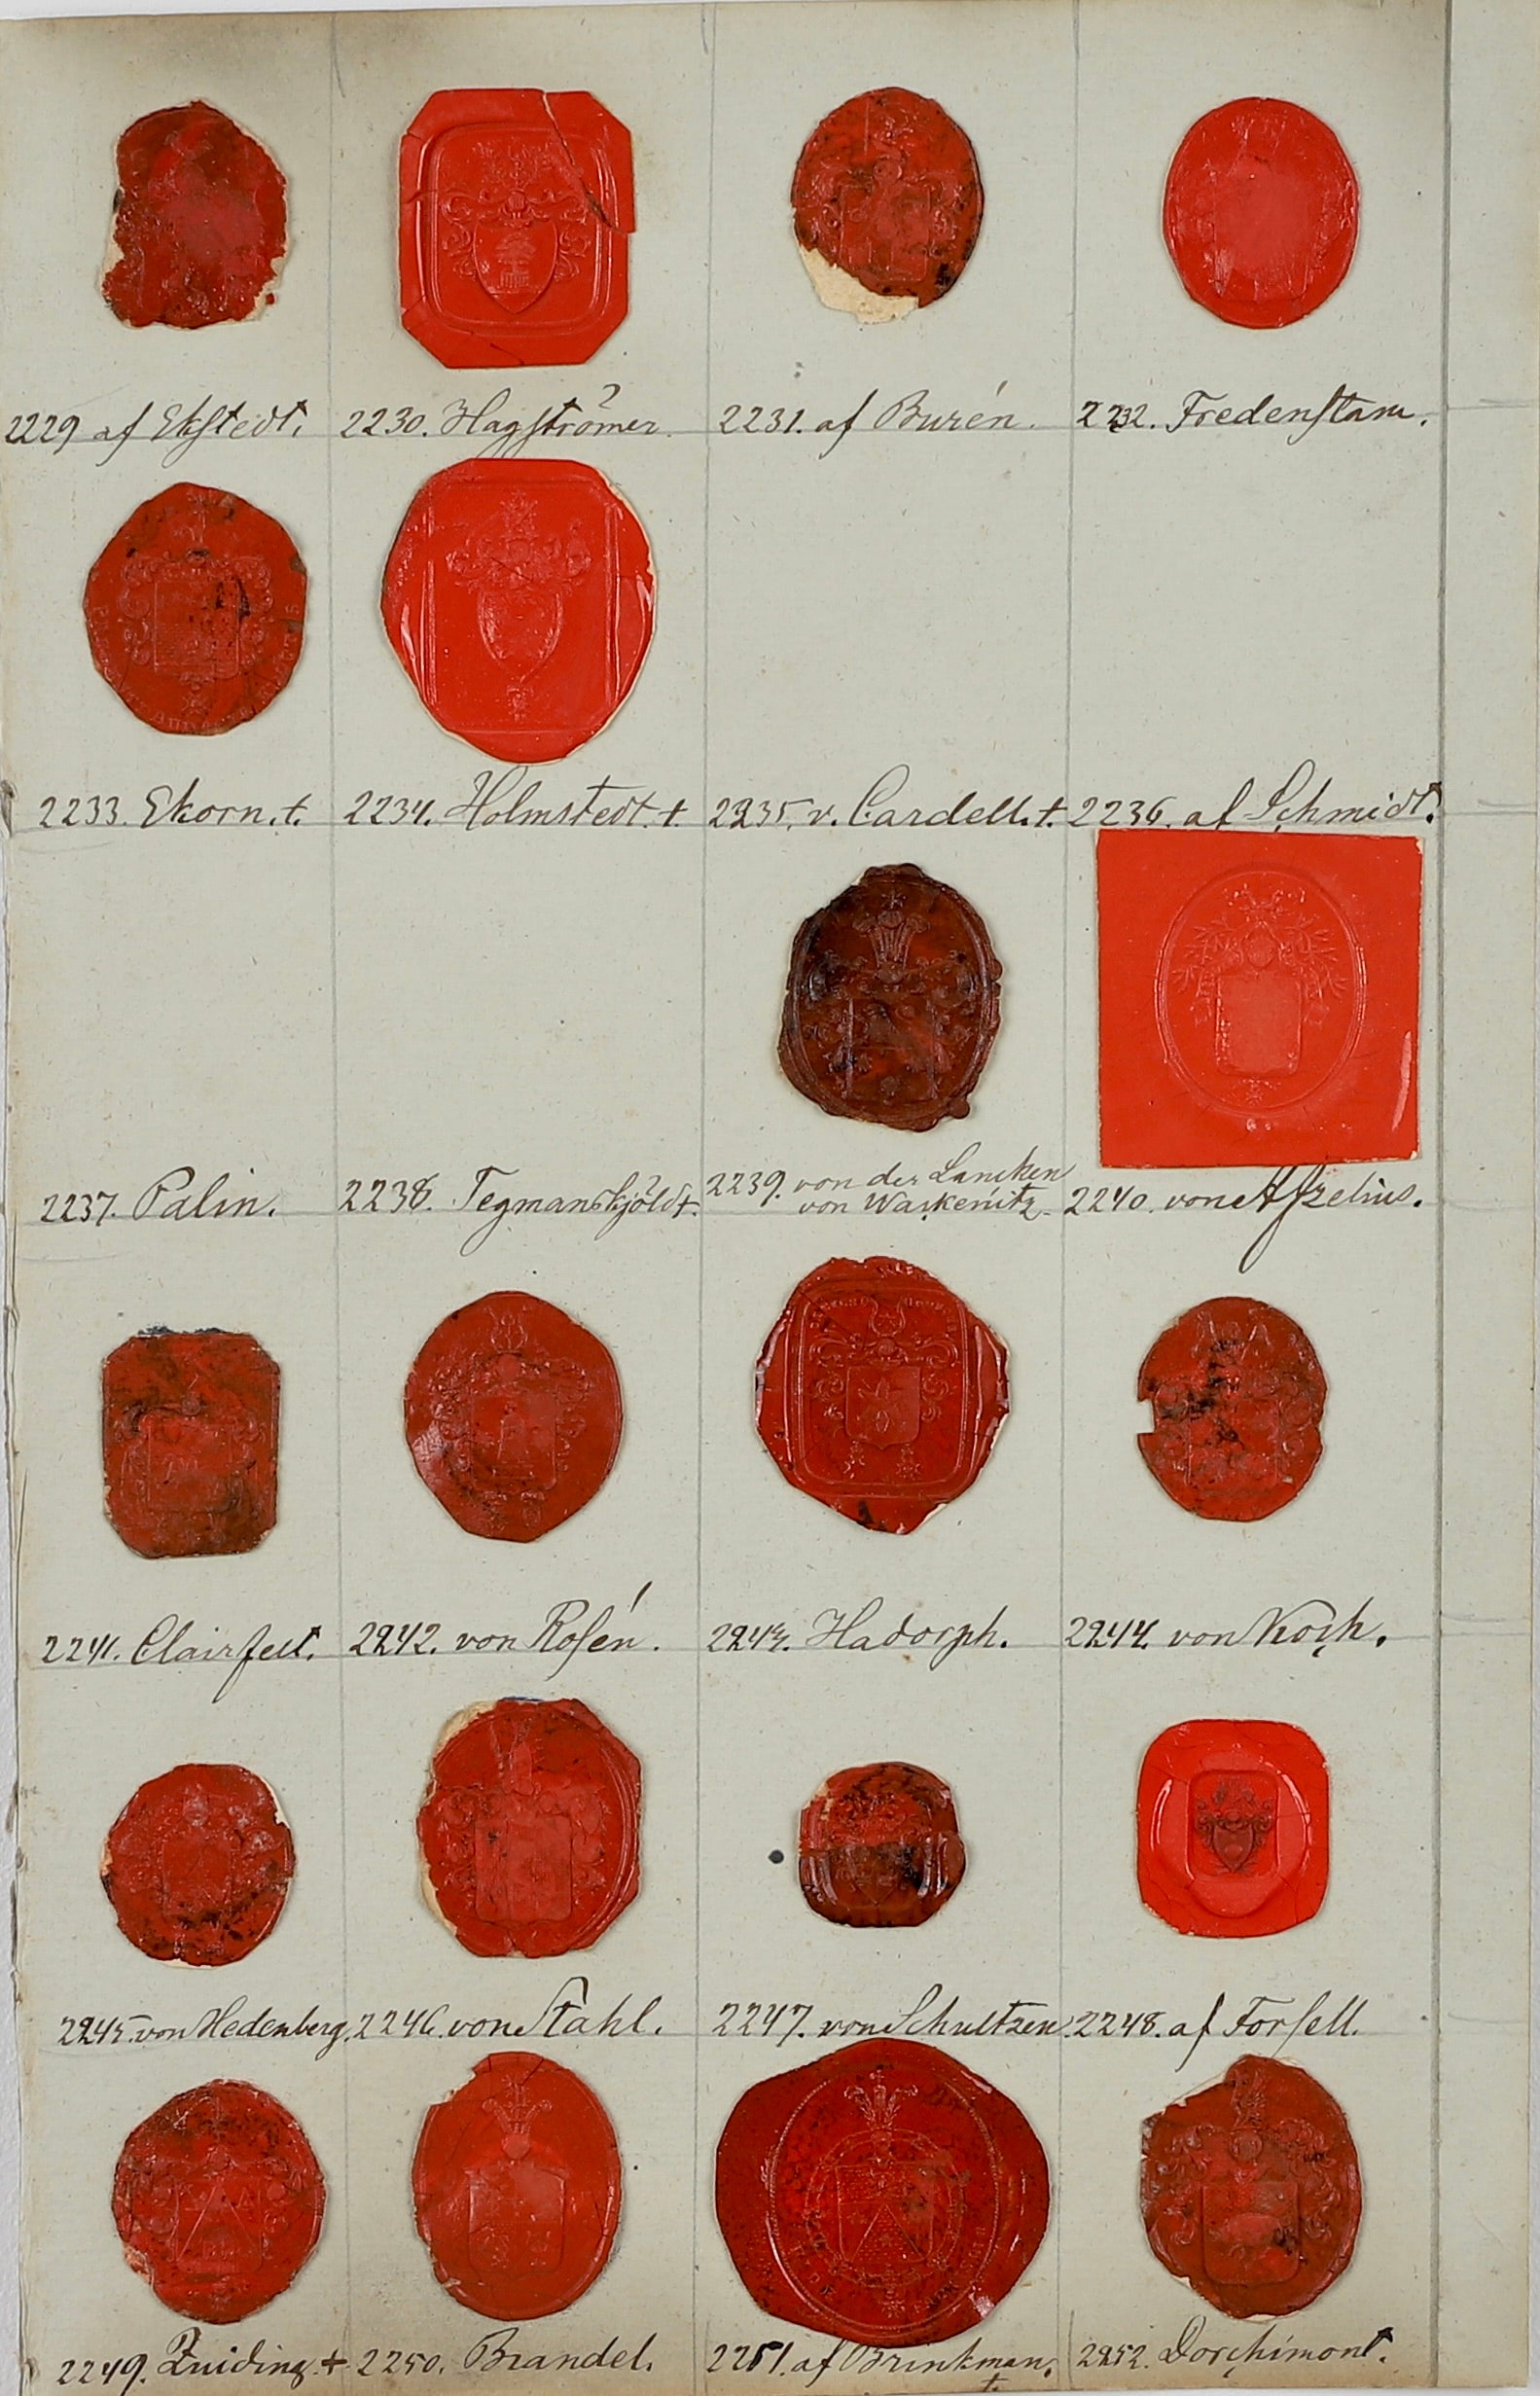 2229 af Ekstedt.
2230. Hagströmer.
2231. af Burén.
2232. Fredenstam.
2233. Ekorn. †.
2234. Holmstedt. †.
2235. v. Cardell. †.
2236. af Schmidt.
2237. Palin.
2238. Tegmanskjöld †.
2239. von der Lancken
von Wackenitz.
2240. von Afzelius.
2241. Clairfelt.
2242. von Rosén.
2243. Hadorph.
2244. von Koch.
2245. von Hedenberg.
2246. von Stahl.
2247. von Schultzen.
2248. af Forsell.
2249. Zuiding. †
2250. Brandel.
2251. af Brinkman.
†.
2252. Dorchimont.